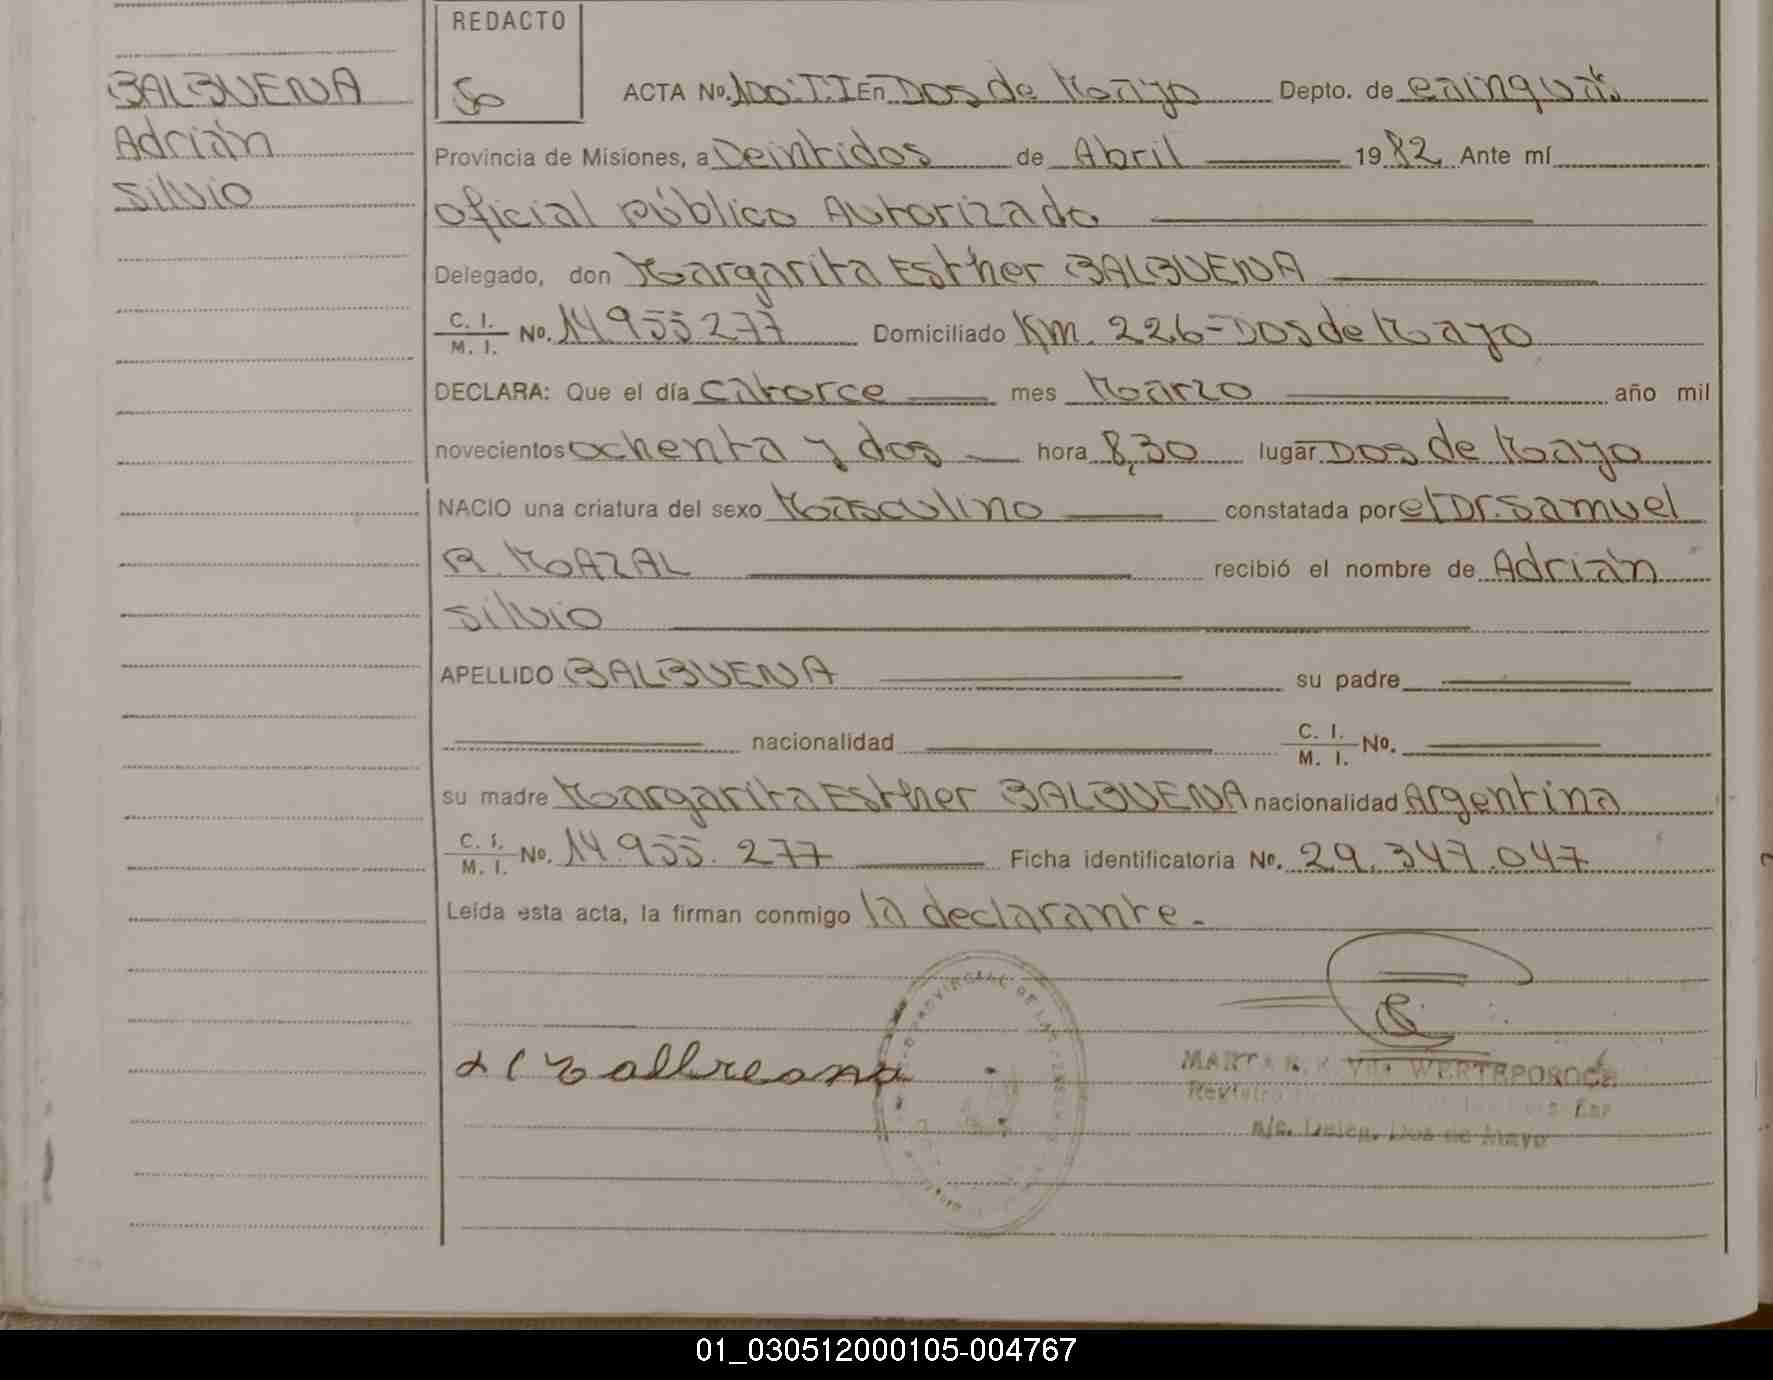 REDACTO
BALBUENA
Adrián
Silvio
ACTA No. 100:T.I En Dos de Mayo Depto. de Cainguás
Provincia de Misiones, a Veintidos de Abril 1982 Ante mí
oficial público Autorizado
Delegado, don Margarita Esther BALBUENA
C. I. / M. I. No. 14.955277 Domiciliado Km. 226-Dos de Mayo
DECLARA: Que el día catorce mes Marzo año mil
novecientos ochenta y dos hora 8,30 lugar Dos de Mayo
NACIO una criatura del sexo Masculino constatada por el Dr. Samuel
R. MAZAL recibió el nombre de Adrián
Silvio
APELLIDO BALBUENA su padre
nacionalidad C. I. / M. I. No.
su madre Margarita Esther BALBUENA nacionalidad Argentina
C. I. / M. I. No. 14.955.277 Ficha identificatoria No. 29.347.047
Leída esta acta, la firman conmigo la declarante.-
PROVINCIAL DE LAS
WERTEPOROCH
a/c. Deleg. Dos de Mayo
01_030512000105-004767